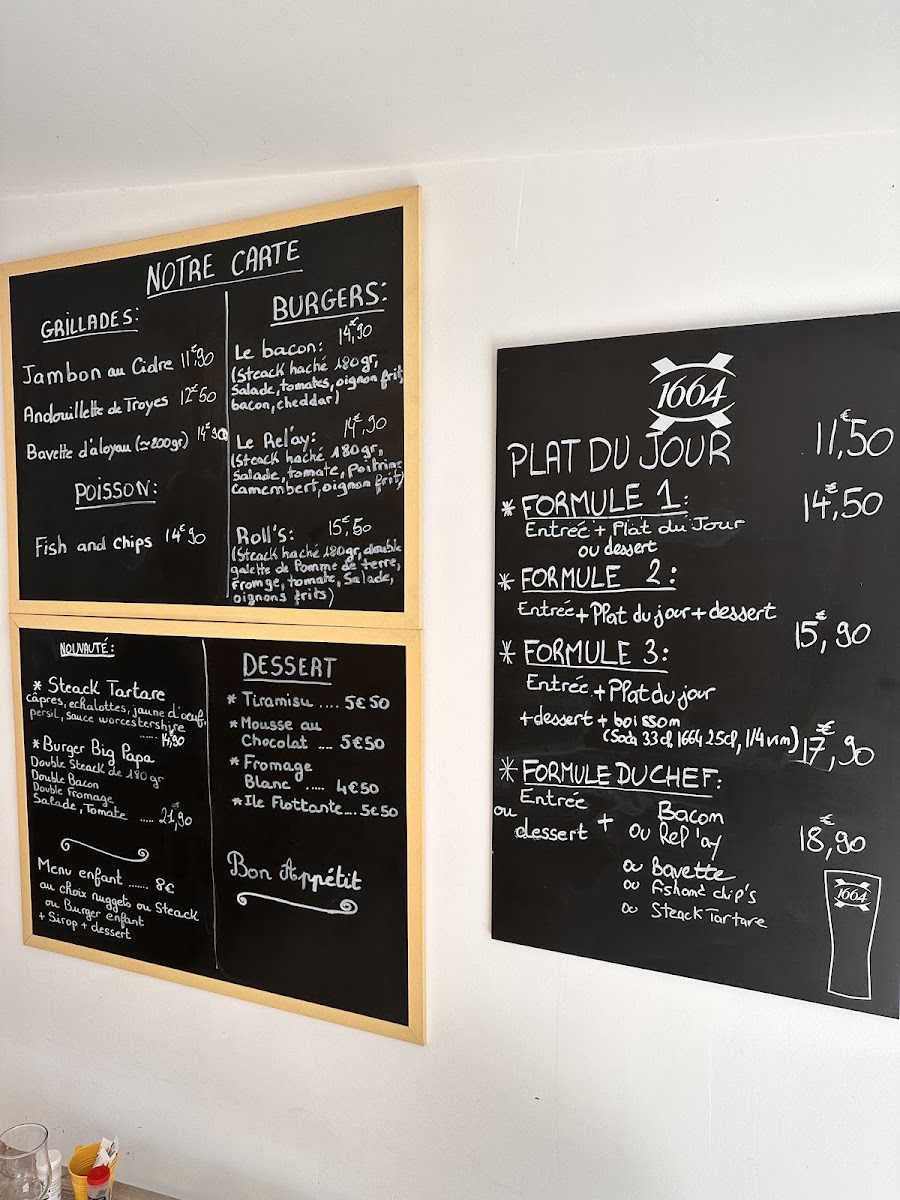 NOTRE CARTE
GRILLADES:
Jambon au Cidre 11€,90
Andouillette de Troyes 12€50
Bavette d'aloyau (~200gr) 14€90
POISSON:
Fish and chips 14€90
BURGERS:
Le bacon: 14€,90
(Steack haché 180gr,
Salade, tomates, oignon frit,
bacon, cheddar)
Le Rel'ay: 14€,90
(Steack haché 180gr,
Salade, tomate, Poitrine
camembert, oignon frit)
Roll's: 15€,50
(Steack haché 180gr, double
galette de Pomme de terre,
Fromge, tomate, Salade,
oignons frits)
NOUVAUTÉ:
* Steack Tartare
câpres, echalottes, jaune d'oeuf,
persil, sauce worcestershire
...... 14,90
* Burger Big Papa
Double Steack de 180gr
Double Bacon
Double Fromage
Salade, Tomate ..... 21€,90
Menu enfant ...... 8€
au choix nuggets ou Steack
ou Burger enfant
+ Sirop + dessert
DESSERT
* Tiramisu .... 5€50
* Mousse au
Chocolat .... 5€50
* Fromage
Blanc ..... 4€50
* Ile Flottante.... 5€50
Bon Appétit
1664
PLAT DU JOUR 11€,50
* FORMULE 1: 14€,50
Entrée + Plat du Jour
ou dessert
* FORMULE 2:
Entrée + Plat du jour + dessert
15€,90
* FORMULE 3:
Entrée + Plat du jour
+ dessert + boisson
(Soda 33cl, 1664 25cl, 1/4 vin) 17€,90
* FORMULE DU CHEF:
Entrée
ou
dessert + Bacon
ou Rel'ay 18€,90
ou Bavette
ou Fish and chip's
ou Steack Tartare
1664